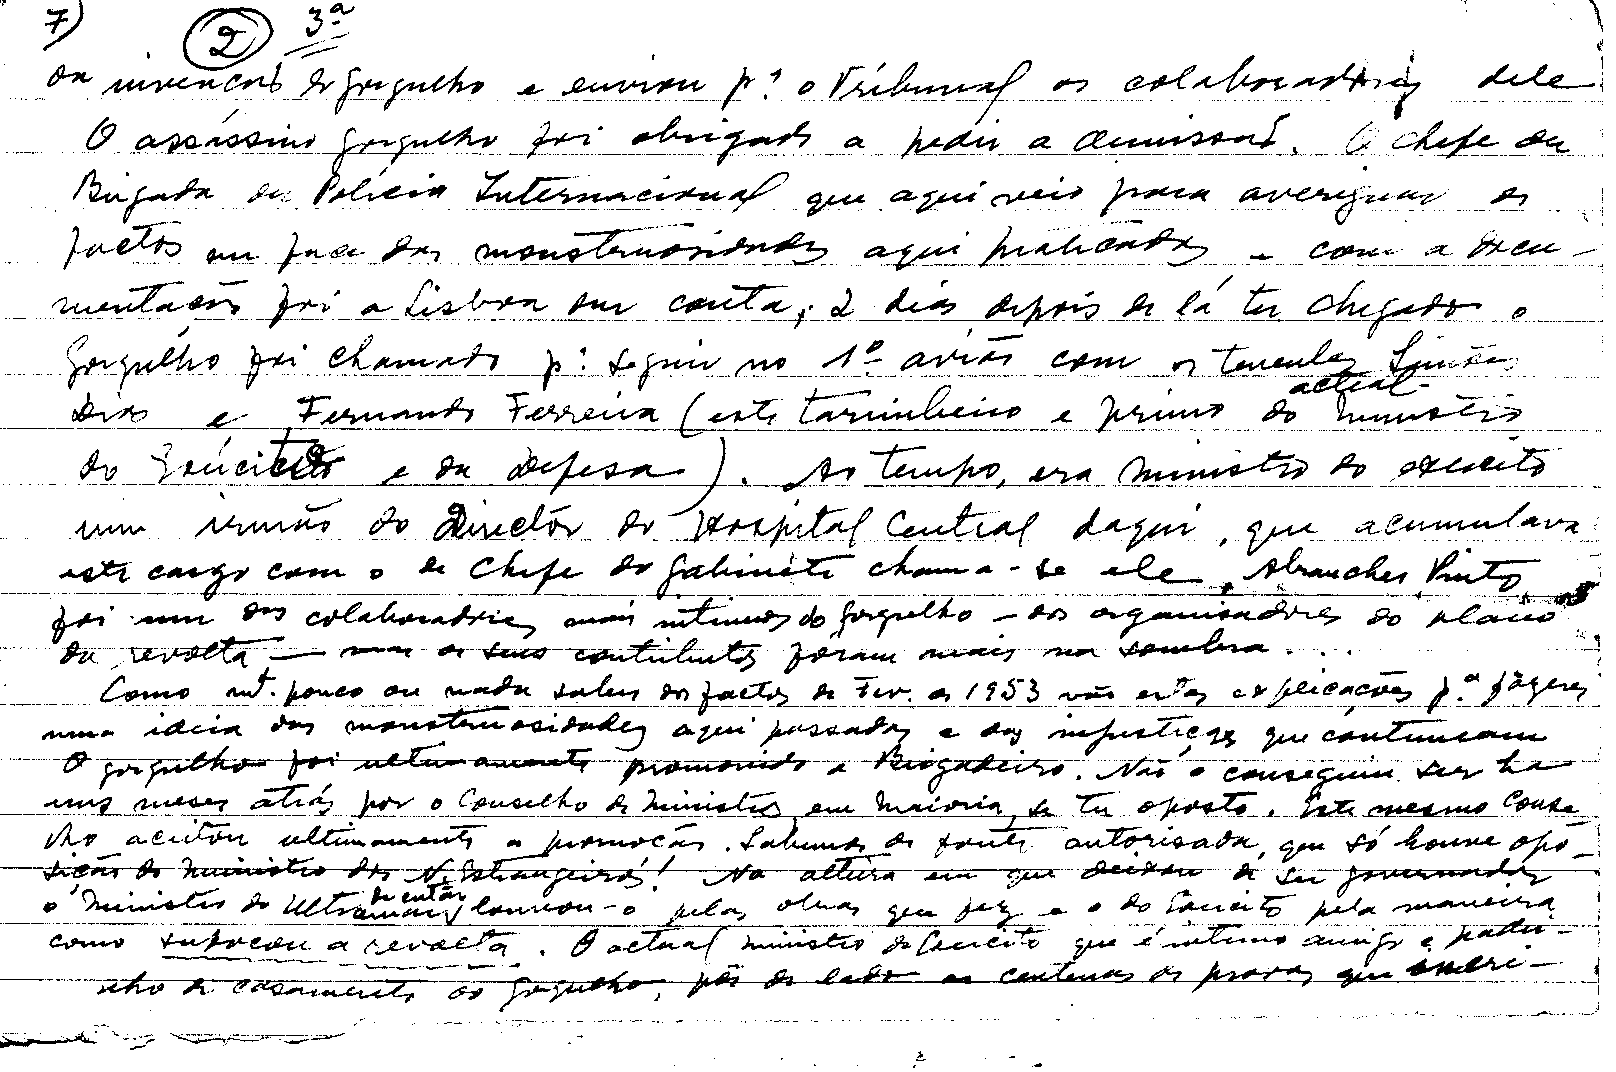 7) 2 3ª
da invenção do Gorgulho e enviou pª o Tribunal os colaboradores dele
O assassino Gorgulho foi obrigado a pedir a demissão. O chefe da
Brigada da Polícia Internacional que aqui veio para averiguar os
factos em face das monstruosidades aqui praticadas e com a docu-
mentação foi a Lisboa dar conta; 2 dias depois de lá ter chegado o
Gorgulho foi chamado pª seguir no 1º avião com os tenentes Simões
Dias e Fernando Ferreira (este tarimbeiro e primo do actual ministro
do Exército e da Defesa). Ao tempo, era ministro do exército
um irmão do Director do Hospital Central daqui, que acumulava
este cargo com o de Chefe do Gabinete chama-se ele, Abranches Pinto,
foi um dos colaboradores mais intimos do Gorgulho - dos organisadores do plano
da revolta — mas os seus contributos foram mais na sombra....
Como mt. pouco ou nada sabes dos factos de Fev. de 1953 vão estas explicações pª fazeres
uma ideia das monstruosidades aqui passadas e das injustiças que continuam
O Gorgulho foi ultimamente promovido a Brigadeiro. Não o conseguiu ser ha
uns meses atrás por o Conselho de Ministros, em maioria, se ter oposto. Este mesmo Conse
lho aceitou ultimamente a promoção. Sabemos de fonte autorisada, que só houve opo-
sição do Ministro dos N. Estrangeiros! Na altura em que deixou de ser governador
o Ministro do Ultramar de então louvou-o pelas obras que fez e o do Exército pela maneira
como sufocou a revolta. O actual ministro do Exército que é intimo amigo e padri-
nho de casamento do Gorgulho, pôs de lado as centenas de provas que